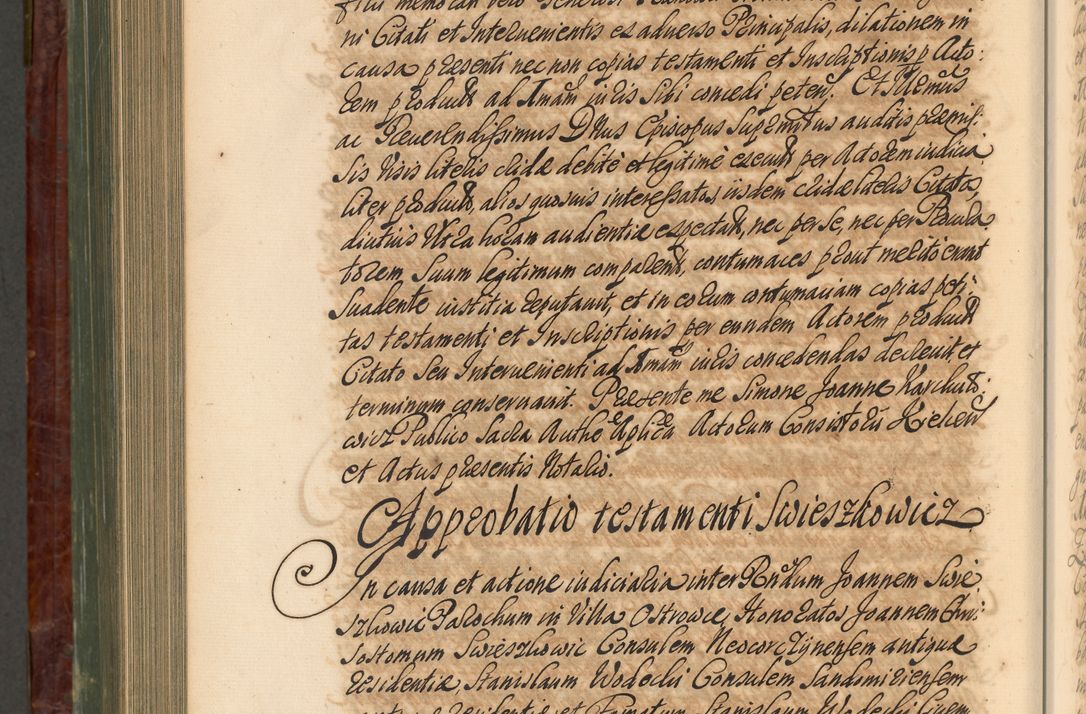 ni Citati et Interuenientis ex aduerso Principalis, dilationem in
causa presenti nec non copias testamenti et Inscriptionis p Acto:
rem product ad Imam iuris sibi concedi peten. Et Illmus
ac Reuerendissimus Dnus Episcopus Supremitus auditis praemis:
sis Visis literis cridae debité et legitimé execut per Actorem iudicia
liter product, alios quosuis interessatos iisdem cridae literis Citatos,
diutius Vltra horam audientiae expectat, nec per se, nec per Procura
torem suum legitimum comparent, contumaces prout meritò erant
Suadente iustitia reputauit, et in eorum contumaciam copias peti:
tas testamenti et Inscriptionis per eundem Actorem product
Citato Seu Interuenienti ad Imam iuris concedendas decreuit, et
terminum conseruauit. Praesente me Simone Joanne Karchuto:
wicz Publico Sacra Authe Aplica Actorum Consistorii Kielcen
et Actus praesentis Notario.
Approbatio testamenti Swieszkowicz
In causa et actione iudiciaria inter Rndum Joannem Swie
szkowic Parochum in Villa Ostrowce, Honoratos Joannem Chri:
sostomum Swieszkowic Consulem Neocorczynensem antiqua
residentia, Stanislaum Wodecki Consulem Sandomiriensem